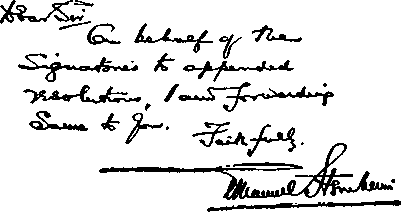 Dear Sir
On behalf of the
Signatories to appended
resolutions, I am forwarding
Same to you. Faithfully.
Emanuel Steinheim